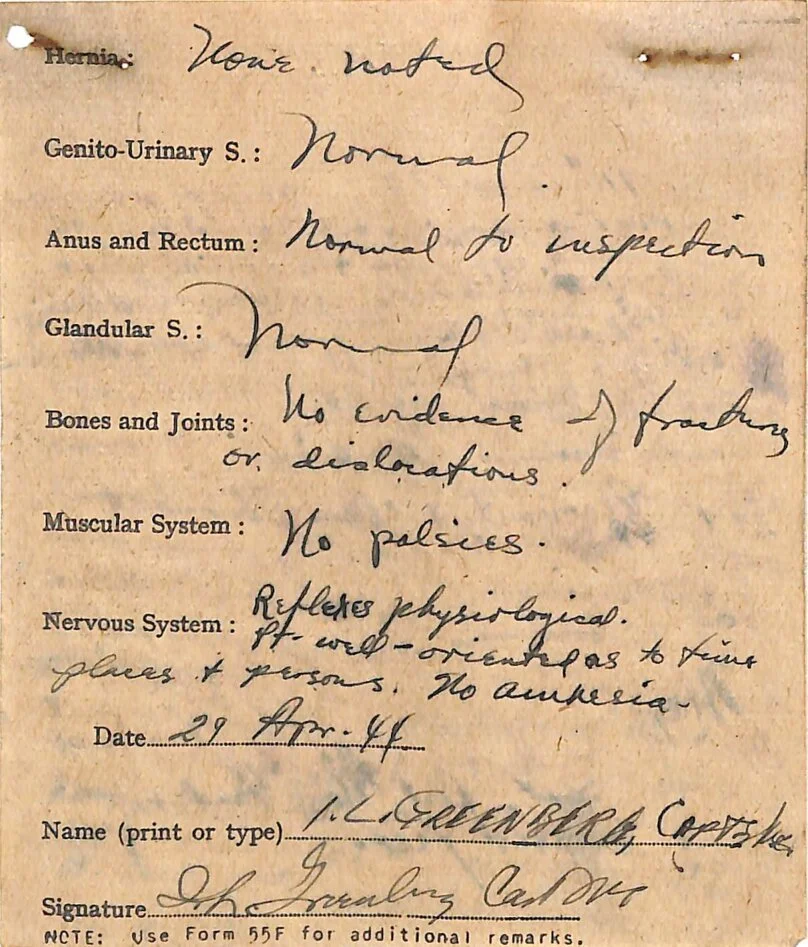 Hernia: None noted
Genito-Urinary S.: Normal.
Anus and Rectum: Normal to inspection
Glandular S.: Normal
Bones and Joints: No evidence of fractures
or dislocations.
Muscular System: No palsies.
Nervous System: Reflexes physiological.
Pt- well-oriented as to time
places + persons. No amnesia-
Date 29 Apr. 44
Name (print or type) I. L. GREENBERG, CAPT
Signature Greenberg Capt
NOTE: Use Form 55F for additional remarks.